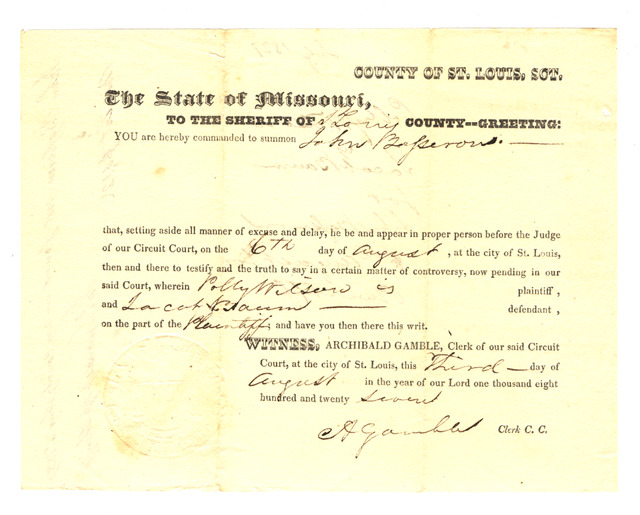 COUNTY OF ST. LOUIS, SCT.
The State of Missouri,
TO THE SHERIFF OF St Louis COUNTY--GREETING:
YOU are hereby commanded to summon John
that, setting aside all manner of excuse and delay, he be and appear in proper person before the Judge
of our Circuit Court, on the 6th day of August, at the city of St. Louis,
then and there to testify and the truth to say in a certain matter of controversy, now pending in our
said Court, wherein Polly Wilson is plaintiff,
and Jacob defendant,
on the part of the Plaintiff; and have you then there this writ.
WITNESS, ARCHIBALD GAMBLE, Clerk of our said Circuit
Court, at the city of St. Louis, this Third day of
August in the year of our Lord one thousand eight
hundred and twenty seven
A Gamble Clerk C. C.